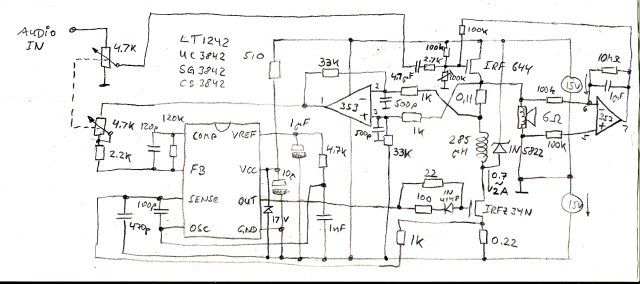 AUDIO
IN
4.7K
LT1242
UC3842
SG3842
CS3842
510
33K
353
2
3
4.7µF
2.7K
100K
100K
100K
IRF 644
500p
500p
1K
1K
0,11
285
µH
1N 5822
100K
100K
6Ω
15V
15V
10MΩ
1µF
6
5
7
353
4.7K
2.2K
120p
120K
COMP
VREF
FB
VCC
SENSE
OUT
OSC
GND
1µF
10µ
4.7K
33K
17V
1nF
22
100
1N
4148
0.7
2A
IRFZ34N
1K
0.22
100p
470p